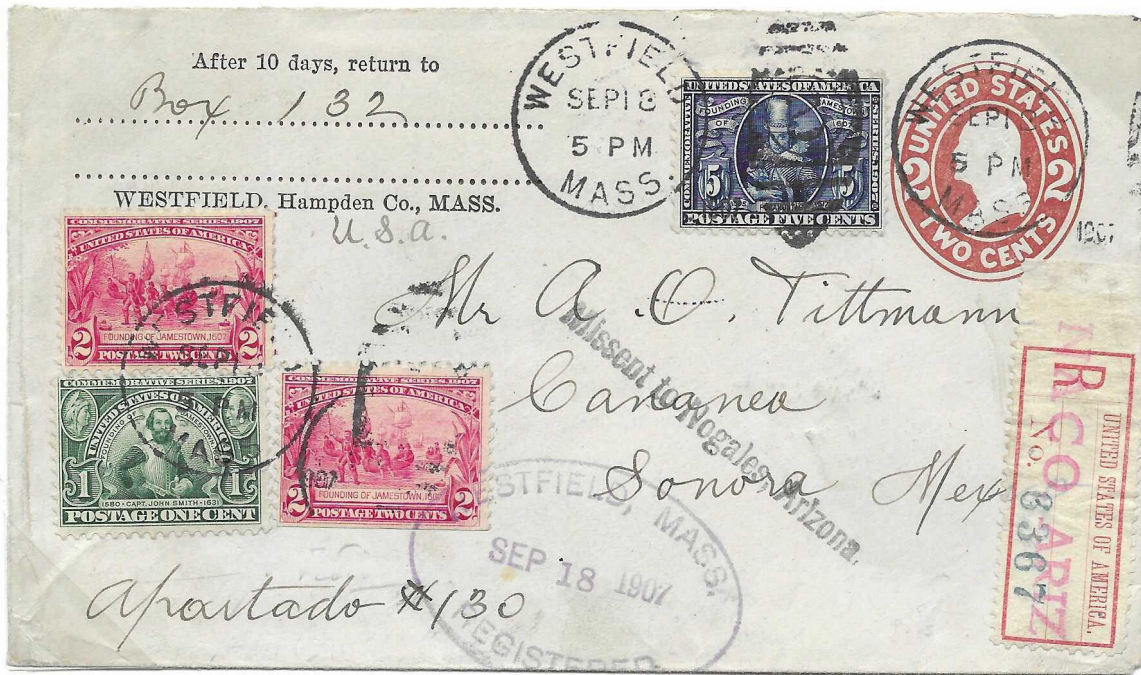 After 10 days, return to
Box 132
WESTFIELD, Hampden Co., MASS.
U.S.A.
WESTFIELD
SEP 18
5 PM
MASS.
UNITED STATES OF AMERICA
FOUNDING OF JAMESTOWN 1607
5 5
POSTAGE FIVE CENTS
UNITED STATES
2 2
TWO CENTS
WESTFIELD
SEP 18
5 PM
MASS
1907
COMMEMORATIVE SERIES, 1907
UNITED STATES OF AMERICA
FOUNDING OF JAMESTOWN, 1607
2 POSTAGE TWO CENTS 2
WESTFIE
SEP
MAS
COMMEMORATIVE SERIES, 1907
UNITED STATES OF AMERICA
FOUNDING OF JAMESTOWN
1580 · CAPT. JOHN SMITH · 1631
1 1
POSTAGE ONE CENT
COMMEMORATIVE SERIES, 1907
UNITED STATES OF AMERICA
FOUNDING OF JAMESTOWN, 1607
2 POSTAGE TWO CENTS 2
1907
Mr A. O. Tittmann
Cananea
Sonora Mex
Missent to Nogales, Arizona.
Apartado # 130
WESTFIELD, MASS.
SEP 18 1907
REGISTERED
UNITED STATES OF AMERICA.
R
No. 8367
ARTZ